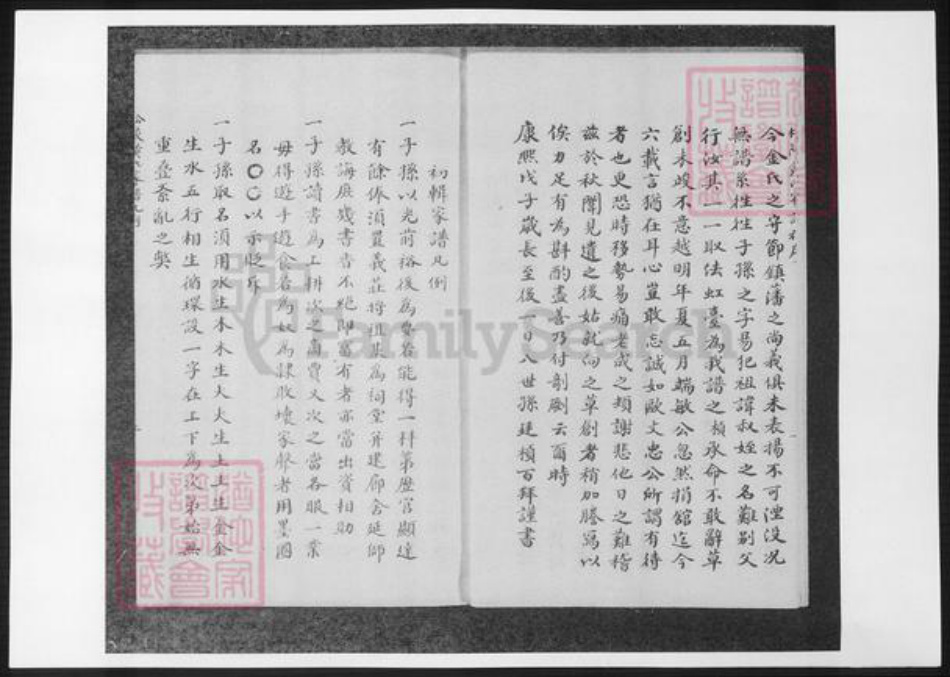 今金氏之守節鎮藩之尚義俱未表揚不可湮没况
無譜系往往子孫之字易犯祖諱叔姪之名難别父
行汝其一一取法虹臺為我譜之楨承命不敢辭草
創未竣不意越明年夏五月端敏公忽然捐舘迄今
六載言猶在耳心豈敢忘誠如歐文忠公所謂有待
者也更恐時移勢易痛老成之頬謝悲他日之難稽
兹於秋闈見遺之後姑就向之草創者稍加謄寫以
俟力足有為斟酌盡善乃付剞劂云爾時
康熙戊子歲長至後一日八世孫廷楨百拜謹書
初輯家譜凡例
一子孫以光前裕後為要若能得一科第歷官顯達
有餘俸須置義莊將祖基為祠堂并建廊舍延師
教誨庶幾書香不絶即富有者亦當出資相助
一子孫讀書為上耕次之商賈又次之當各服一業
毋得遊手遊食若為奴為隸敗壞家聲者用墨圈
名〇〇〇以示貶斥
一子孫取名須用水生木木生火火生土土生金金
生水五行相生循環設一字在上下為次第始無
重叠紊亂之獘
FamilySearch